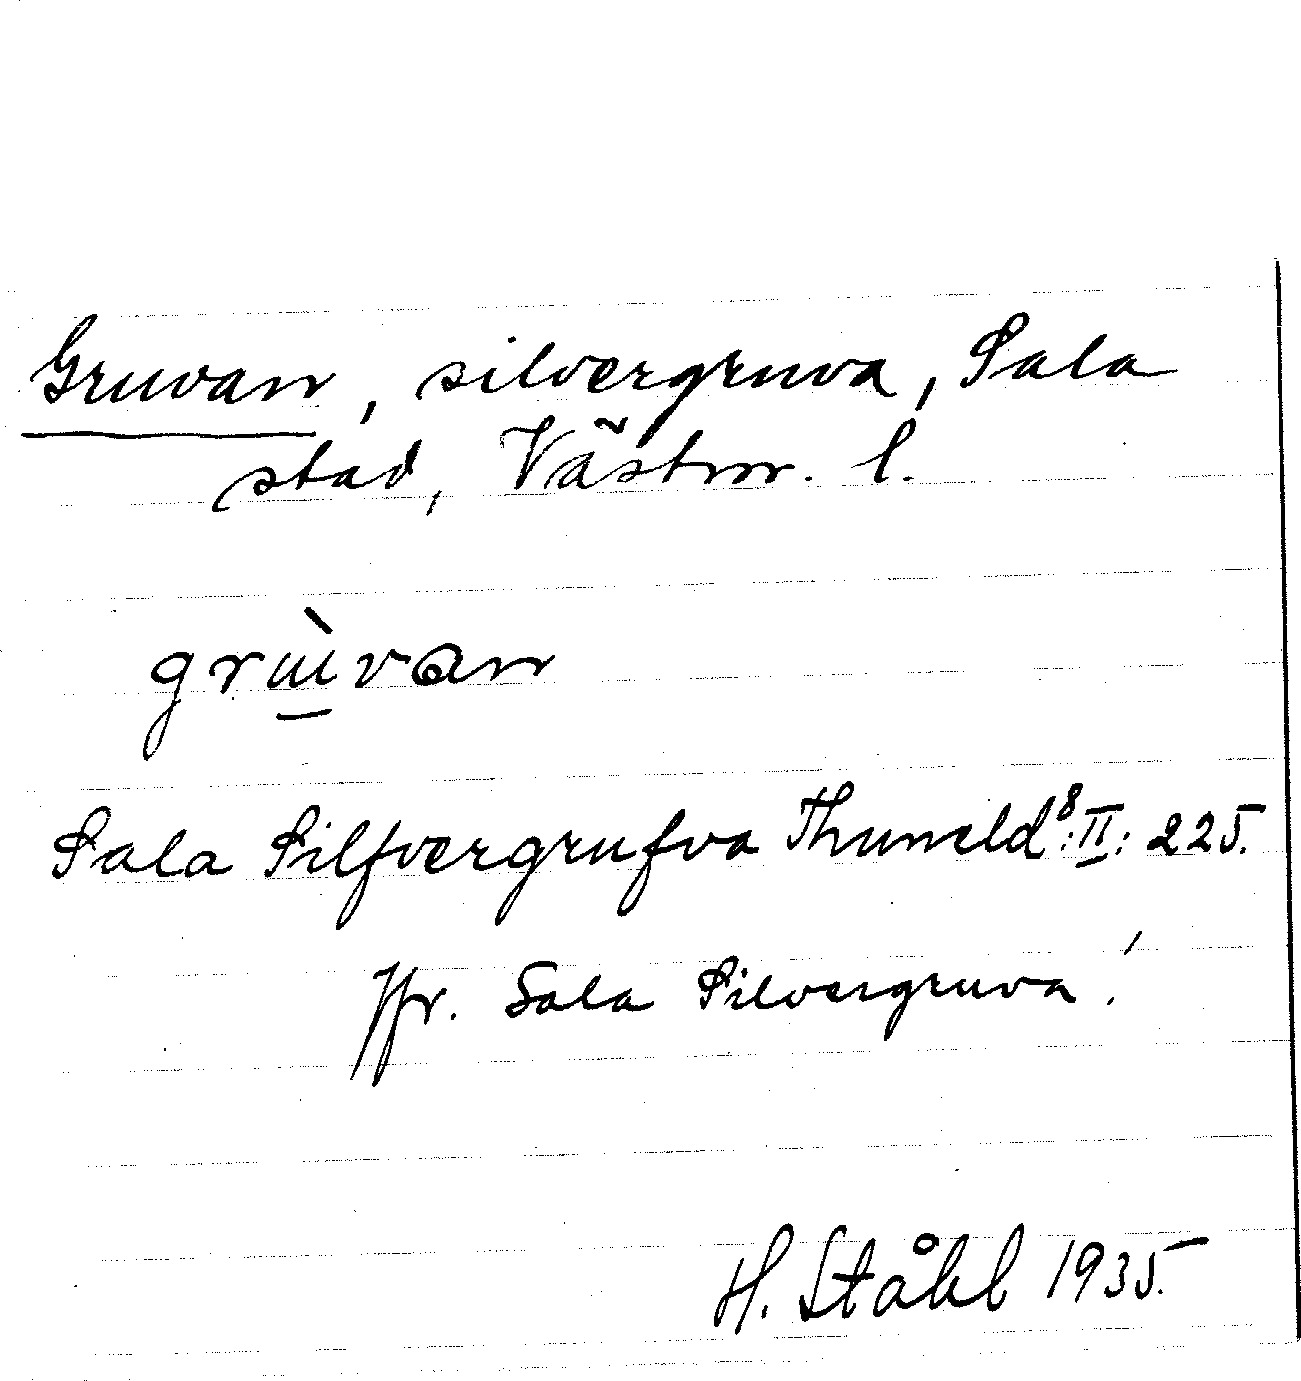 Gruvan, silvergruva, Sala
stad, Västm. l.
grɯ̀van
Sala Silfvergrufva Thuneld⁸:II: 225.
Jfr. Sala Silvergruva!
H. Ståhl 1935.